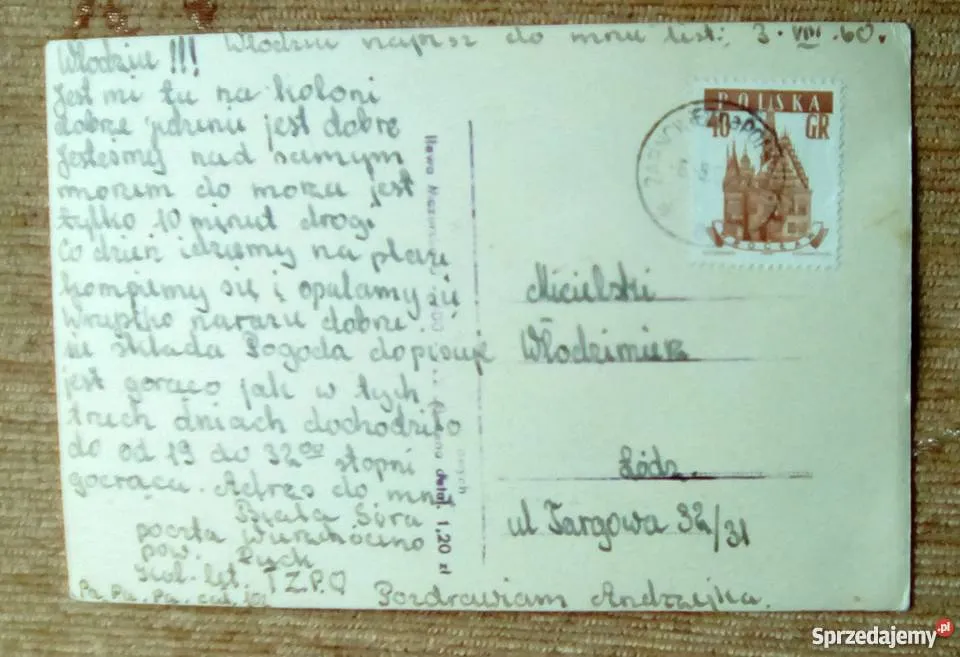 Włodziu napisz do mnie list. 3.VIII.60.
Włodziu!!!
Jest mi tu na koloni
dobrze jedzenie jest dobre
Jesteśmy nad samym
morzem do morza jest
tylko 10 minut drogi
Co dzień idziemy na plażę
kompiemy się i opalamy się
Wszystko narazie dobrze
się składa Pogoda dopisuje
jest gorąco jak w tych
trzech dniach dochodziło
do od 19 do 32 stopni
gorąca. Adres do mnie
Biała Góra
poczta
pow.
Kol. let. T.Z.P.O
Pa Pa Pa
Pozdrawiam Andrzejka.
1,20 zł
POLSKA
40 GR
WROCŁAW
Micielski
Włodzimierz
Łódz.
ul Targowa 32/31
Sprzedajemy.pl